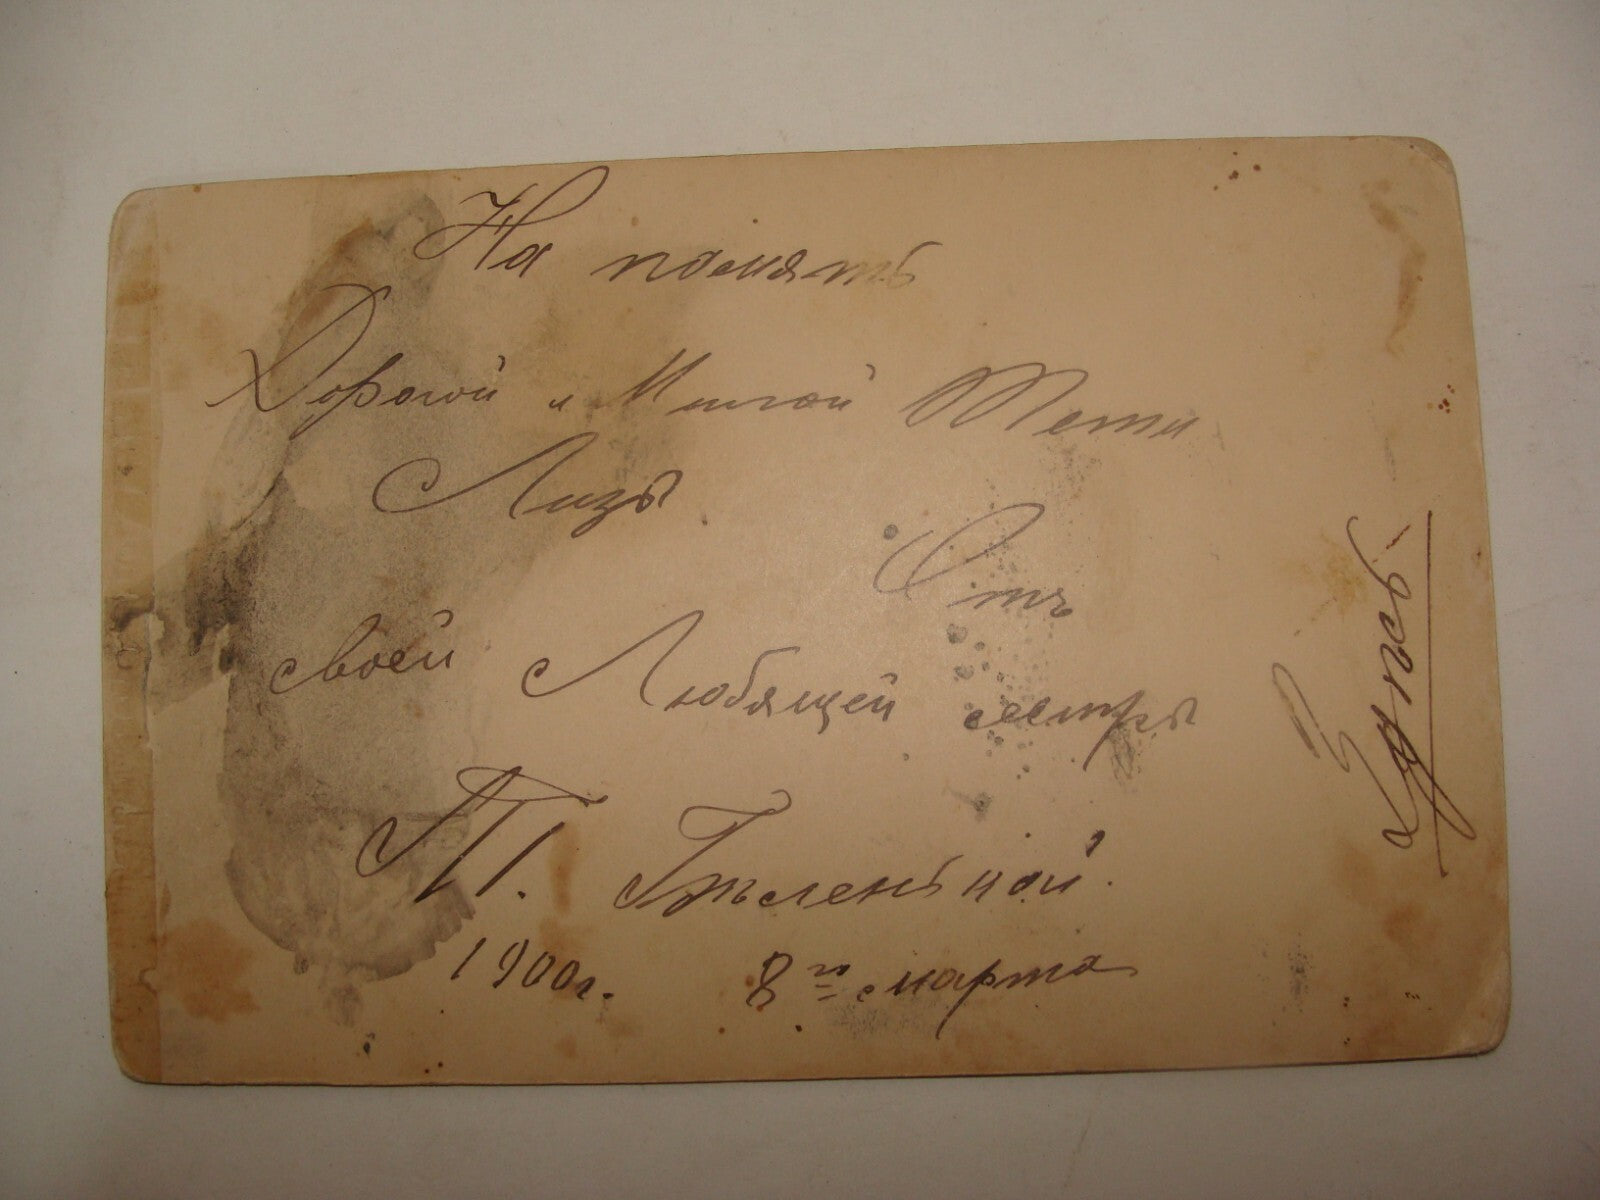 На память
Дорогой и Милой Тети
Лизы
Отъ
своей Любящей сестры
П.
1900г. 8го марта